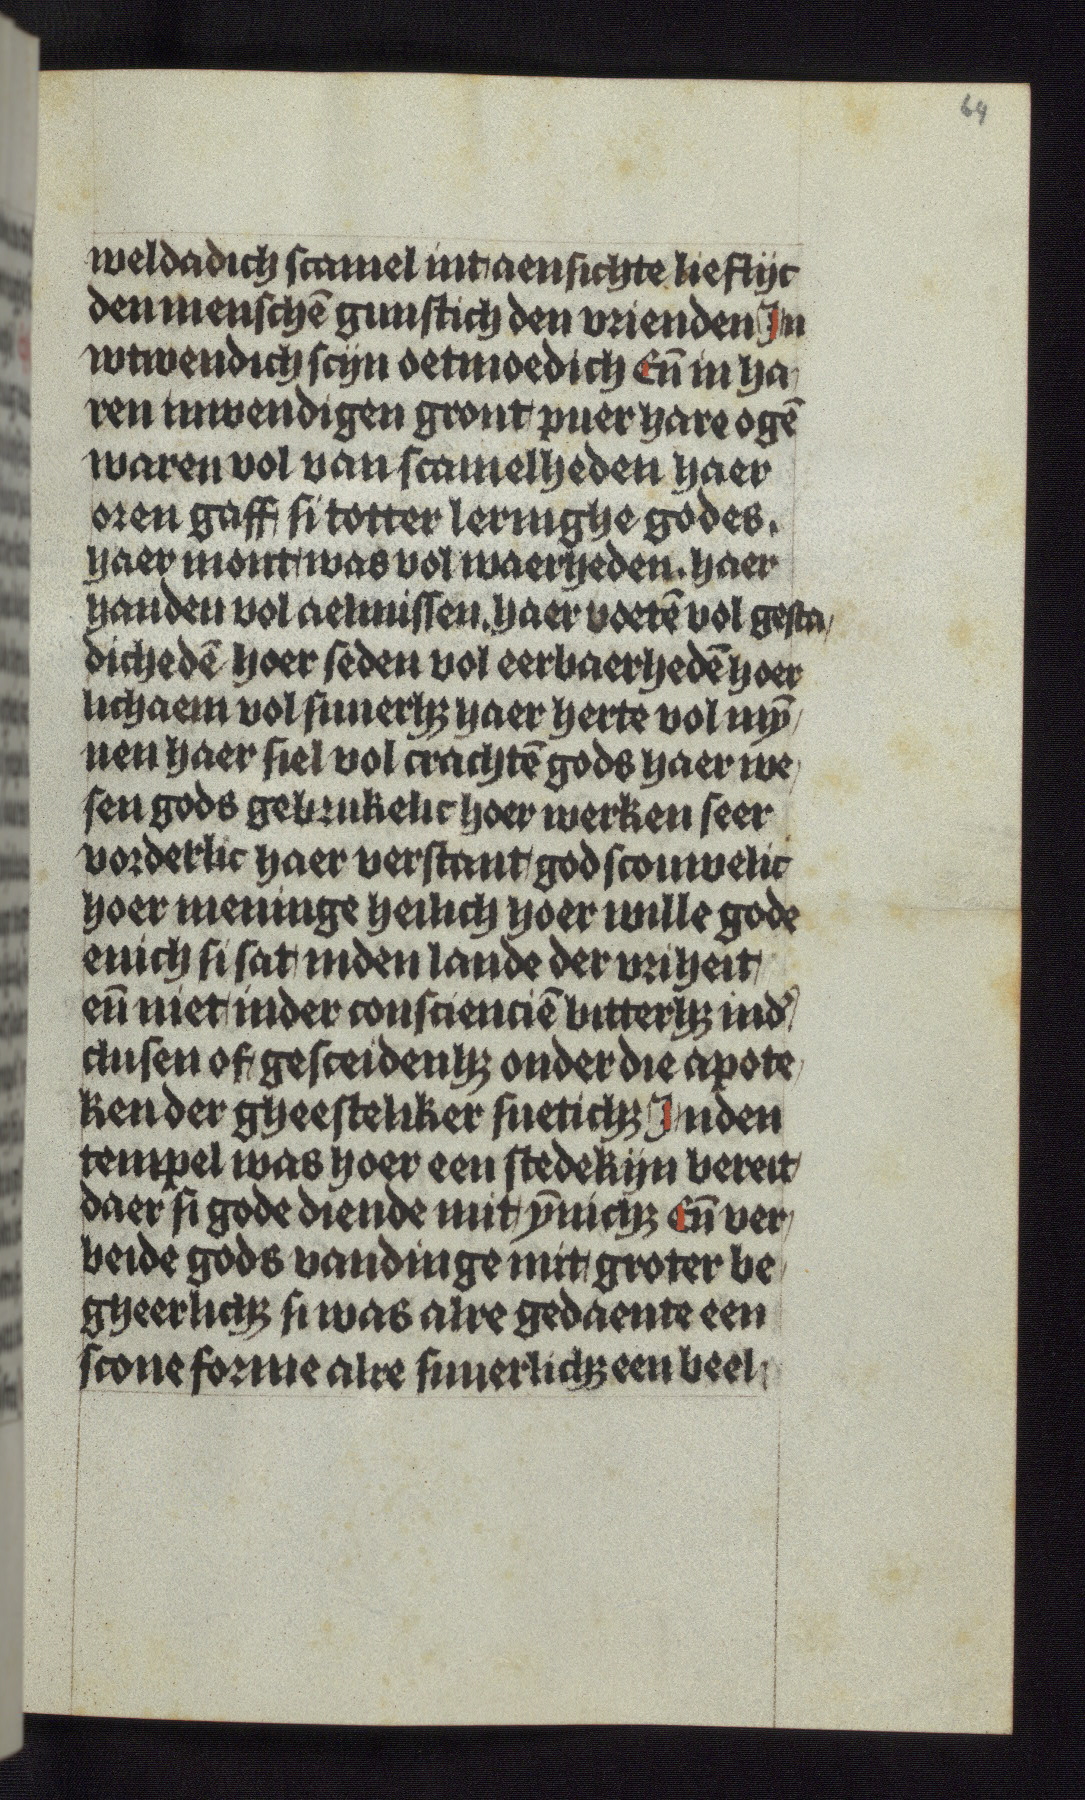 64
weldadich scamel int aensichte lieflijc
den menschē gunstich den vrienden In
wtwendich scijn oetmoedich Eñ in ha/
ren inwendigen gront puer hare ogē
waren vol van scamelheden haer
oren gaff si totter leringhe godes.
haer mont was vol waerheden. haer
handen vol aelmissen. haer voetē vol gesta/
dichedē hoer seden vol eerbaerhedē hoer
lichaem vol suuerhꝫ haer herte vol mȳ/
nen haer siel vol crachtē gods haer we/
sen gods gebrukelic hoer werken seer
vorderlic haer verstant god scouwelic
hoer meninge heilich hoer wille gode
enich si sat inden lande der vriheit
eñ niet inder conscienciē bitterhꝫ ind'
clusen of gesceidenhꝫ onder die apote/
ken der gheesteliker suetichꝫ Inden
tempel was hoer een stedekijn bereit
daer si gode diende mit ȳnichꝫ Eñ ver/
beide gods vandinge mit groter be/
gheerlichꝫ si was alre gedaente een
scone forme alre suuerlichꝫ een beel/